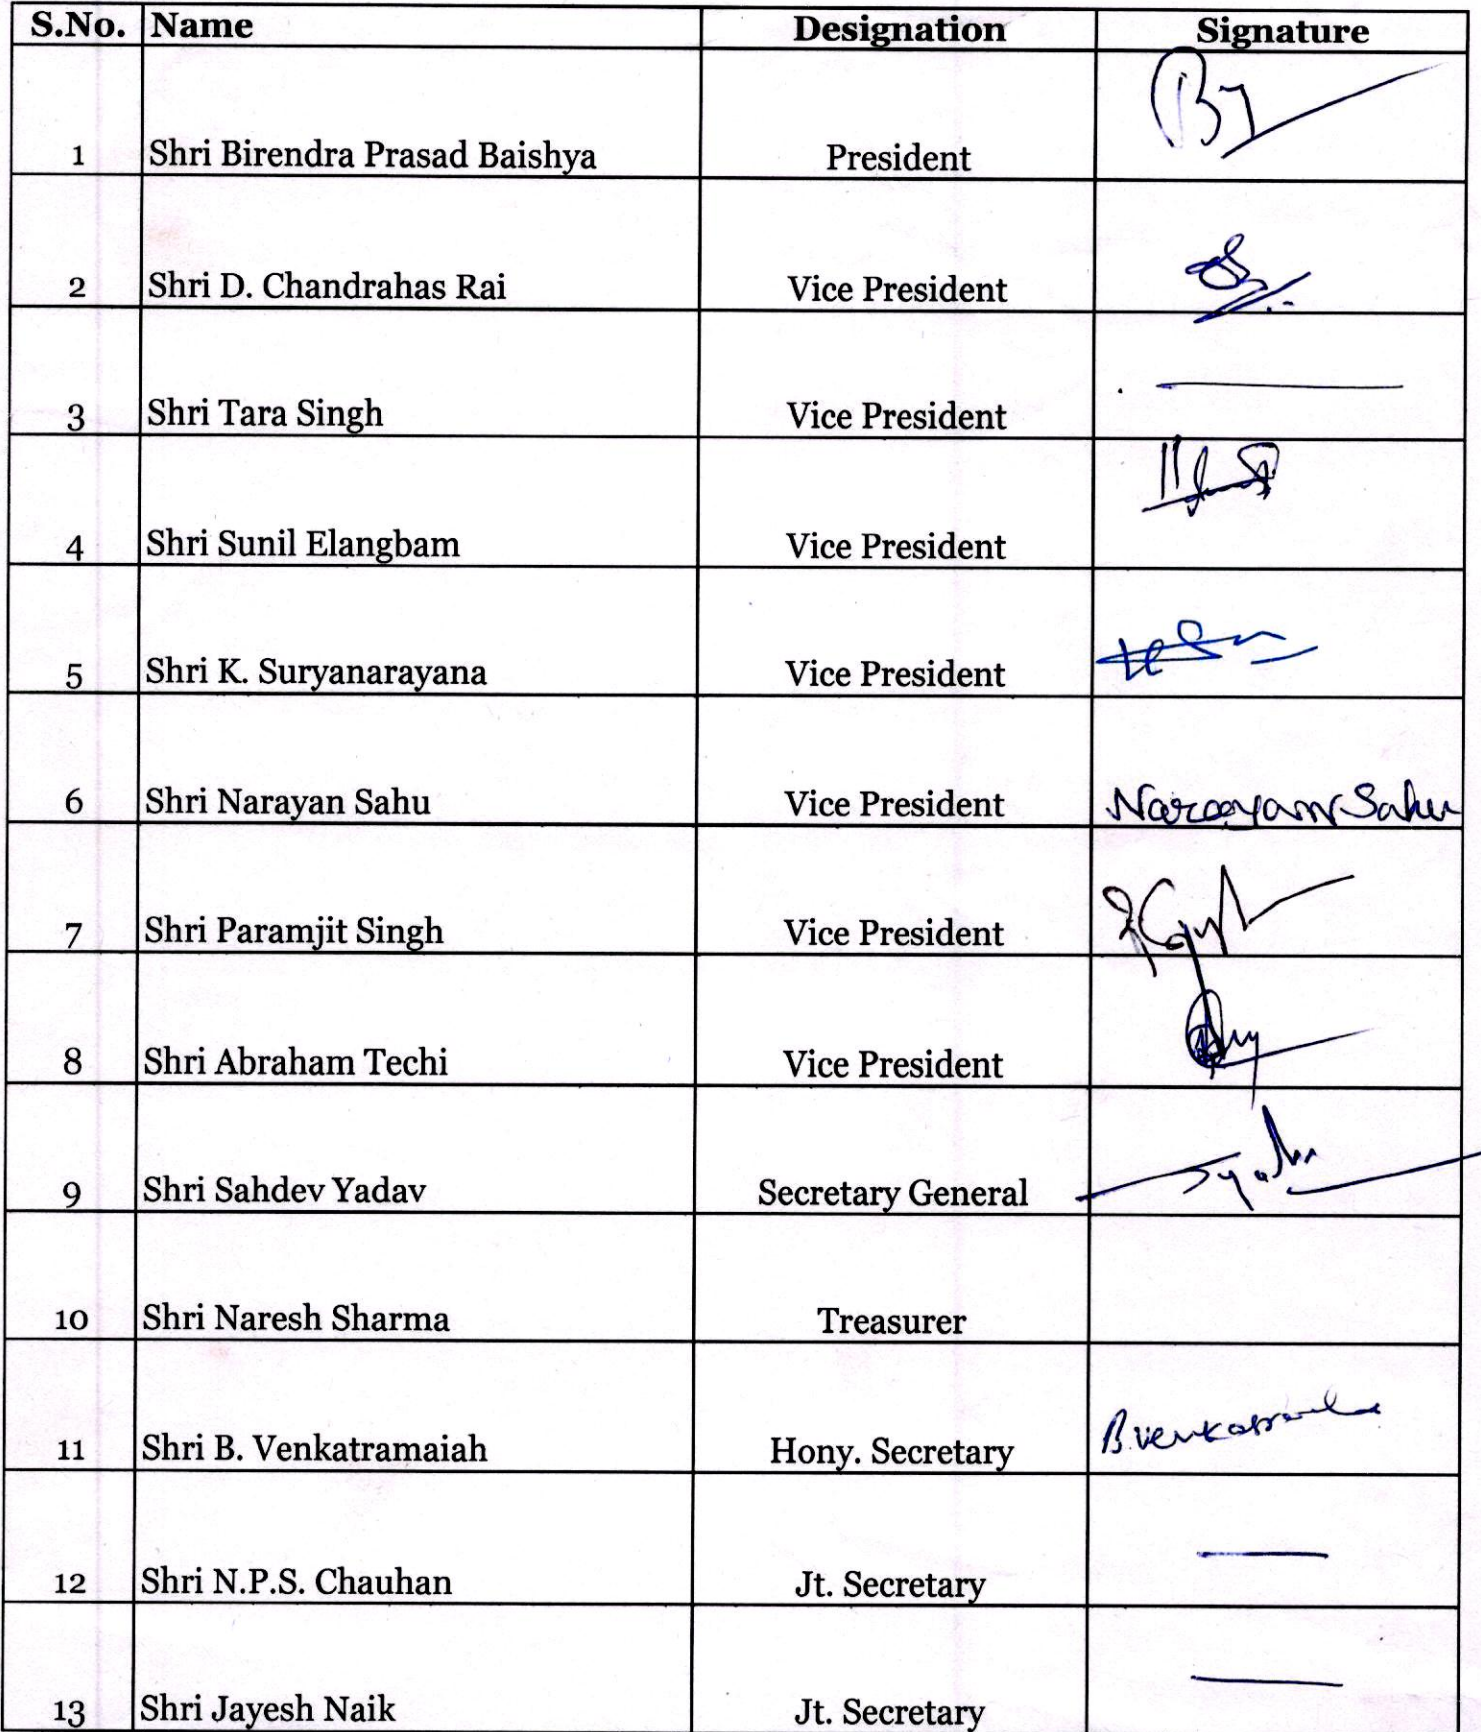 S.No. Name Designation Signature
1 Shri Birendra Prasad Baishya President
2 Shri D. Chandrahas Rai Vice President
3 Shri Tara Singh Vice President
4 Shri Sunil Elangbam Vice President
5 Shri K. Suryanarayana Vice President
6 Shri Narayan Sahu Vice President Narayan Sahu
7 Shri Paramjit Singh Vice President
8 Shri Abraham Techi Vice President
9 Shri Sahdev Yadav Secretary General
10 Shri Naresh Sharma Treasurer
11 Shri B. Venkatramaiah Hony. Secretary
12 Shri N.P.S. Chauhan Jt. Secretary
13 Shri Jayesh Naik Jt. Secretary